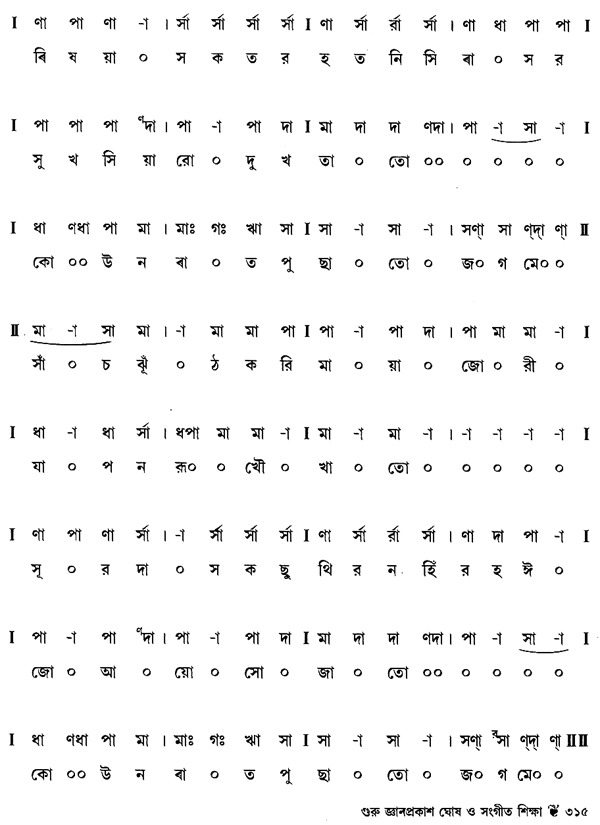 I ণা পা ণা -া । র্সা র্সা র্সা র্সা I ণা র্সা র্রা র্সা । ণা ধা পা পা I
ৰি ষ য়া ০ স ক ত র হ ত নি সি ৰা ০ স র
I পা পা পা ণ্দা । পা -া পা দা I মা দা দা ণদা । পা -া সা -া I
সু খ সি য়া রো ০ দু খ তা ০ তো ০০ ০ ০ ০ ০
I ধা ণধা পা মা । মাঃ গঃ ঋা সা I সা -া সা -া । সণ্া সা ণ্দ্া ণ্া II
কো ০০ উ ন ৰা ০ ত পু ছা ০ তো ০ জ০ গ মে০ ০
II মা -া সা মা । -া মা মা পা I পা -া পা দা । পা মা মা -া I
সাঁ ০ চ ঝুঁ ০ ঠ ক রি মা ০ য়া ০ জো ০ রী ০
I ধা -া ধা র্সা । ধপা মা মা -া I মা -া মা -া । -া -া -া -া I
যা ০ প ন রূ০ ০ খৌ ০ খা ০ তো ০ ০ ০ ০ ০
I ণা পা ণা র্সা । -া র্সা র্সা র্সা I ণা র্সা র্রা র্সা । ণা দা পা -া I
সূ ০ র দা ০ স ক ছু থি র ন হিঁ র হ ঈ ০
I পা -া পা ণ্দা । পা -া পা দা I মা দা দা ণদা । পা -া সা -া I
জো ০ আ ০ য়ো ০ সো ০ জা ০ তো ০০ ০ ০ ০ ০
I ধা ণধা পা মা । মাঃ গঃ ঋা সা I সা -া সা -া । সণ্া রসা ণ্দ্া ণ্া II II
কো ০০ উ ন ৰা ০ ত পু ছা ০ তো ০ জ০ গ মে০ ০
গুরু জ্ঞানপ্রকাশ ঘোষ ও সংগীত শিক্ষা ❦ ৩১৫